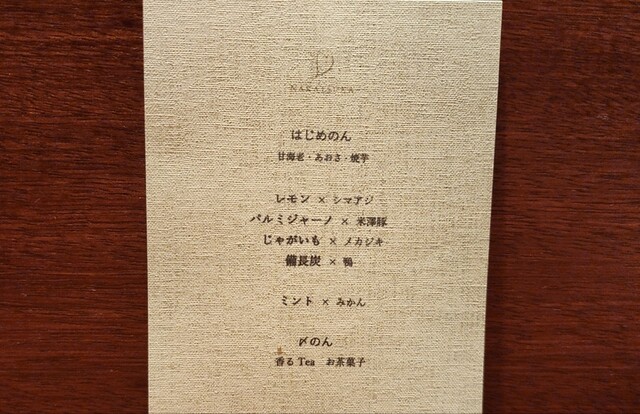 NAKATSUKA
はじめのん
甘海老・あおさ・焼芋
レモン × シマアジ
パルミジャーノ × 米澤豚
じゃがいも × メカジキ
備長炭 × 鴨
ミント × みかん
〆のん
香るTea お茶菓子